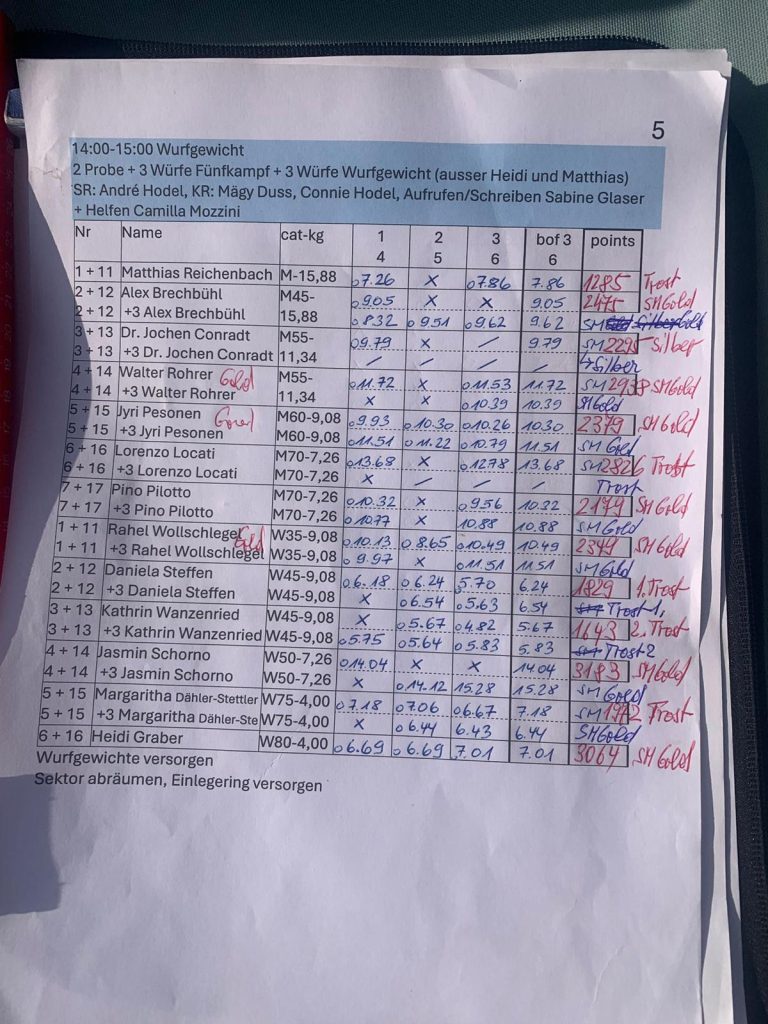 5
14:00-15:00 Wurfgewicht
2 Probe + 3 Würfe Fünfkampf + 3 Würfe Wurfgewicht (ausser Heidi und Matthias)
SR: André Hodel, KR: Mägy Duss, Connie Hodel, Aufrufen/Schreiben Sabine Glaser
+ Helfen Camilla Mozzini
Nr Name cat-kg 1 2 3 bof 3 points
4 5 6 6
1 + 11 Matthias Reichenbach M-15,88 07.26 x 07.86 7.86 1285 Trost
2 + 12 Alex Brechbühl M45- 0905 x x 9.05 2475 SM Gold
2 + 12 +3 Alex Brechbühl 15,88 0832 0951 09.62 9.62 SM
3 + 13 Dr. Jochen Conradt M55- 09.79 x / 9.79 SM 2295 Silber
3 + 13 +3 Dr. Jochen Conradt 11,34 / / / / ↳ Silber
4 + 14 Walter Rohrer Gold M55- 011.72 x 011.53 11.72 SM 2938 SM Gold
4 + 14 +3 Walter Rohrer 11,34 x x 010.39 10.39 SM Gold
5 + 15 Jyri Pesonen M60-9,08 09.93 010.30 010.26 10.30 2379 SM Gold
5 + 15 +3 Jyri Pesonen M60-9,08 011.51 011.22 010.79 11.51 SM Gold
6 + 16 Lorenzo Locati M70-7,26 013.68 x 01278 13.68 SM 2826 Trost
6 + 16 +3 Lorenzo Locati M70-7,26 x / / / Trost
7 + 17 Pino Pilotto M70-7,26 010.32 x 09.56 10.32 2179 SM Gold
7 + 17 +3 Pino Pilotto M70-7,26 01077 x 10.88 10.88 SM Gold
1 + 11 Rahel Wollschlegel Gold W35-9,08 010.13 08.65 010.49 10.49 2349 SM Gold
1 + 11 +3 Rahel Wollschlegel W35-9,08 09.97 x 011.51 11.51 SM Gold
2 + 12 Daniela Steffen W45-9,08 06.18 06.24 5.70 6.24 1829 1. Trost
2 + 12 +3 Daniela Steffen W45-9,08 x 06.54 05.63 6.54 Trost 1.
3 + 13 Kathrin Wanzenried W45-9,08 x 05.67 04.82 5.67 1643 2. Trost
3 + 13 +3 Kathrin Wanzenried W45-9,08 05.75 05.64 05.83 5.83 Trost 2
4 + 14 Jasmin Schorno W50-7,26 014.04 x x 14.04 3183 SM Gold
4 + 14 +3 Jasmin Schorno W50-7,26 x 014.12 15.28 15.28 SM Gold
5 + 15 Margaritha Dähler-Stettler W75-4,00 07.18 0706 06.67 7.18 SM Trost
5 + 15 +3 Margaritha Dähler-Ste W75-4,00 x 06.44 6.43 6.44 SM Gold
6 + 16 Heidi Graber W80-4,00 06.69 06.69 7.01 7.01 3064 SM Gold
Wurfgewichte versorgen
Sektor abräumen, Einlegering versorgen